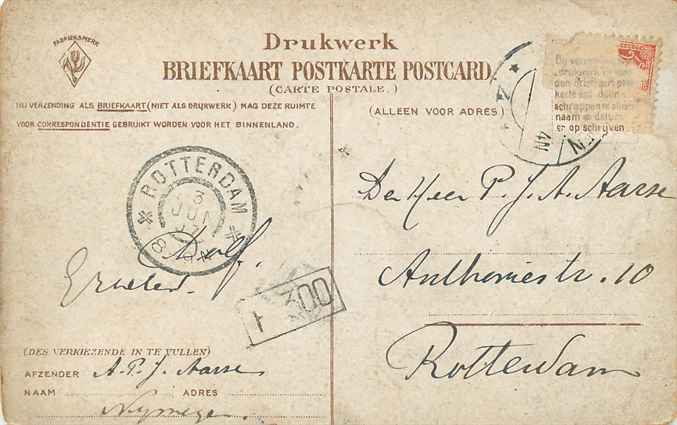 FABRIEKSMERK
Drukwerk
BRIEFKAART POSTKARTE POSTCARD
(CARTE POSTALE.)
BIJ VERZENDING ALS BRIEFKAART (NIET ALS DRUKWERK) MAG DEZE RUIMTE
VOOR CORRESPONDENTIE GEBRUIKT WORDEN VOOR HET BINNENLAND.
(ALLEEN VOOR ADRES)
Bij verzending
drukwerk
den Briefkaart post
schrappen
naam en datum
er op schrijven
4N
N
ROTTERDAM
3
JUN
07
8
Dolf.
1 300
Den Heer P. J. A. Aarse
Anthoniestr. 10
Rotterdam
(DES VERKIEZENDE IN TE VULLEN)
AFZENDER A. P. J. Aarse
NAAM ADRES
Nijmegen